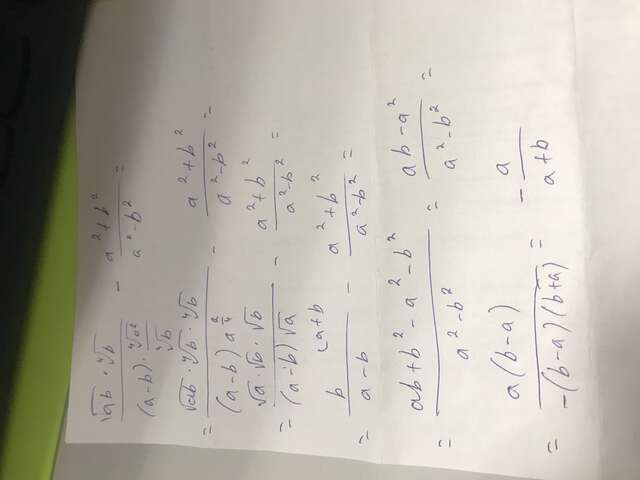 (√ab · ⁴√b) / ((a-b) · (⁴√a² / ⁴√b)) - (a² + b²) / (a² - b²) =
= (√ab · ⁴√b · ⁴√b) / ((a-b) a^(2/4)) - (a² + b²) / (a² - b²) =
= (√a · √b · √b) / ((a-b) √a) - (a² + b²) / (a² - b²) =
= b^(a+b) / (a-b) - (a² + b²) / (a² - b²) =
= (ab + b² - a² - b²) / (a² - b²) = (ab - a²) / (a² - b²) =
= a(b-a) / (-(b-a)(b+a)) = - a / (a+b)